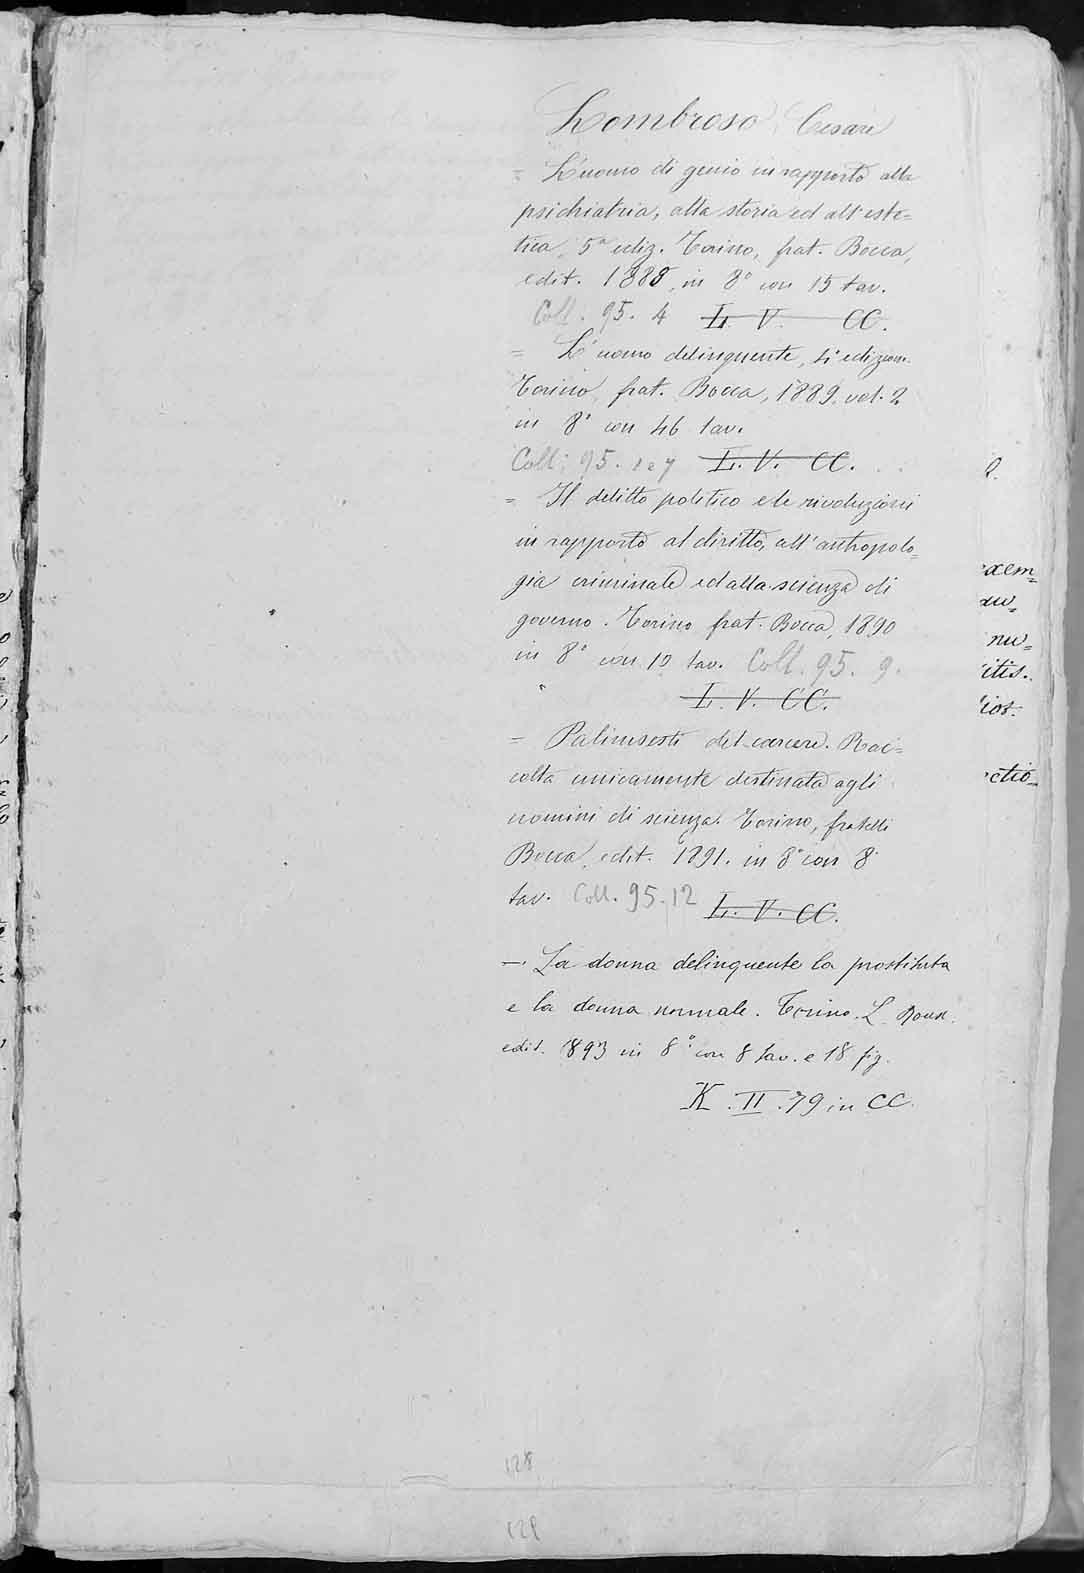 Lombroso, Cesare
= L'uomo di genio in rapporto alla
psichiatria, alla storia ed all'este=
tica, 5ª ediz. Torino, frat. Bocca,
edit. 1888, in 8° con 15 tav.
Coll. 95. 4 L. V. CC.
= L'uomo delinquente, 4ª edizion.
Torino, frat. Bocca, 1889. vol. 2
in 8° con 46 tav.
Coll. 95. 1 e 7 L. V. CC.
= Il delitto politico e le rivoluzioni
in rapporto al diritto, all'antropolo=
gia criminale ed alla scienza di
governo. Torino frat. Bocca, 1890
in 8° con 10 tav. Coll. 95. 9.
L. V. CC.
= Palimsesti del carcere. Rac=
colta unicamente destinata agli
uomini di scienza. Torino, fratelli
Bocca, edit. 1891. in 8° con 8
tav. Coll. 95. 12 L. V. CC.
—. La donna delinquente la prostituta
e la donna normale. Torino. L. Roux.
edit. 893 in 8° con 8 tav. e 18 fig.
K. II. 79 in CC.
xem=
nu=
itis.
ios.
ctio=
128
128